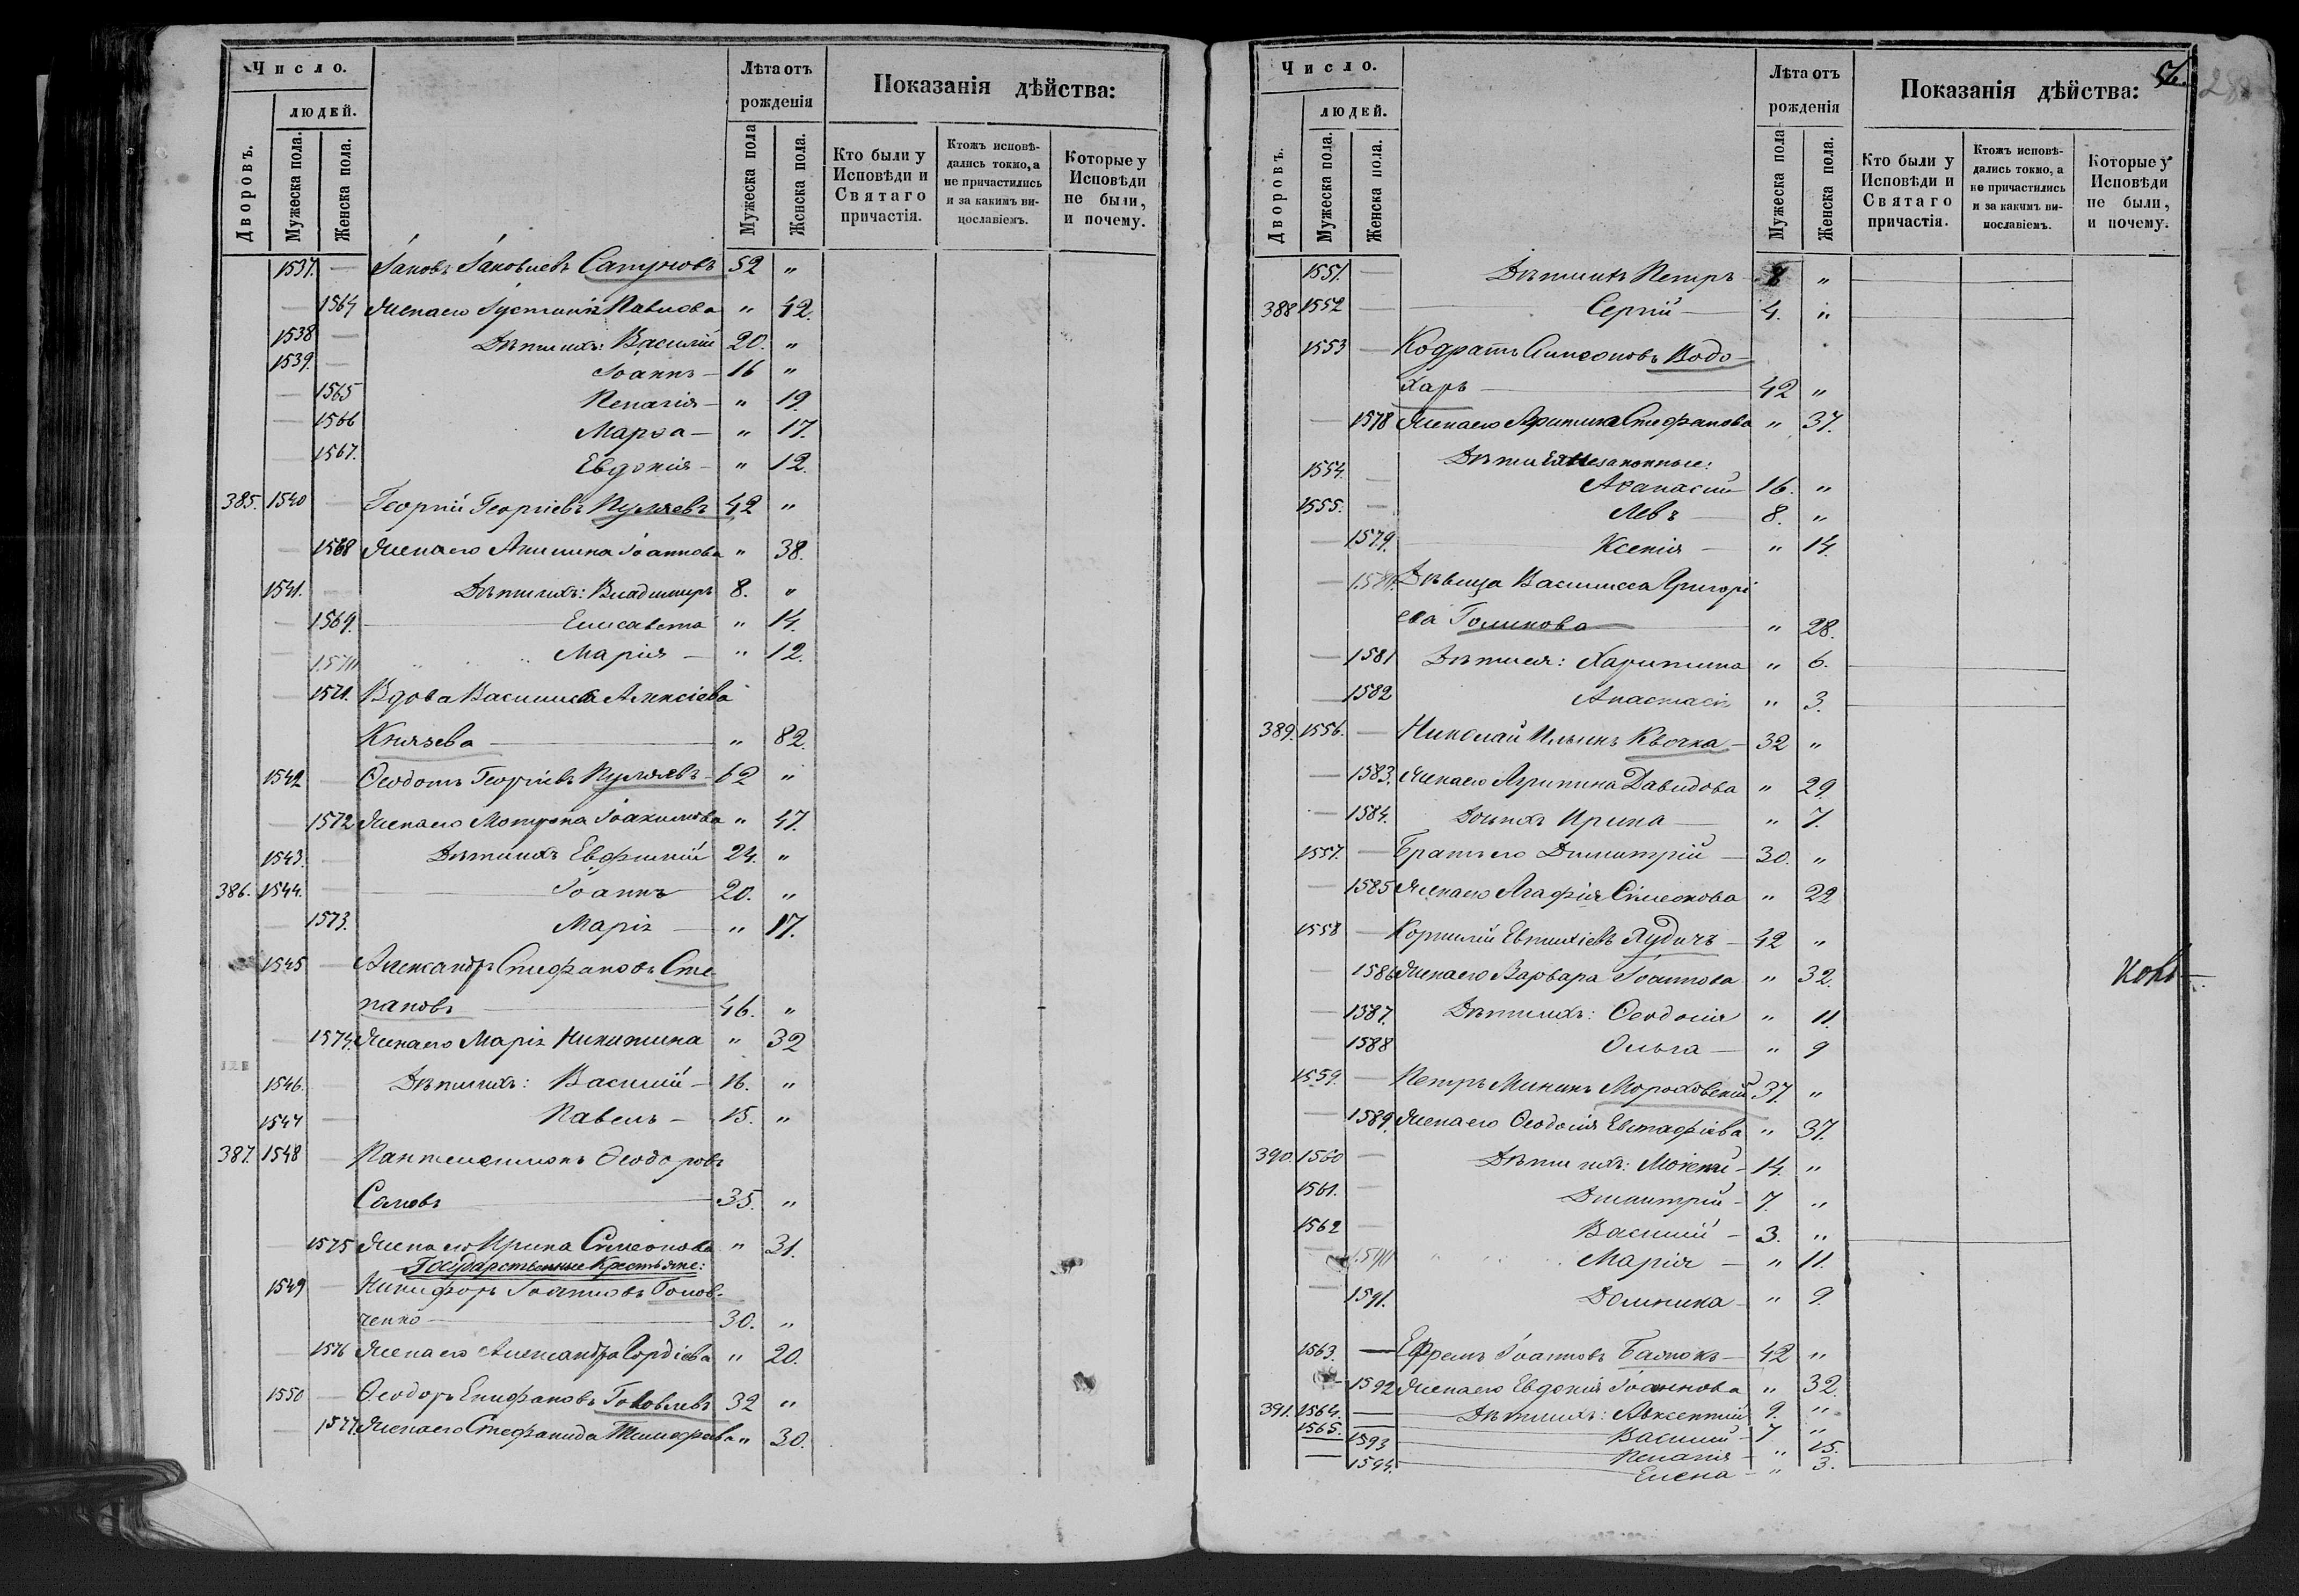 Число.
людей.
Дворовъ.
Мужеска пола.
Женска пола.
Лѣта отъ
рожденія
Мужеска пола
Женска пола.
Показанія дѣйства:
Кто были у
Исповѣди и
Святаго
причастія.
Ктожъ исповѣ-
дались токмо, а
не причастились
и за какимъ ви-
нословіемъ.
Которые у
Исповѣди
не были,
и почему.
1537. — Іаковъ Іаковлевъ 52 "
— 1564 Жена его Павлова " 42.
1538 — Дѣти ихъ: Василій 20. "
1539. — Іоаннъ — 16 "
— 1565 Пелагія — " 19.
— 1566 Марѳа — " 17.
— 1567. Евдокія — " 12.
385. 1540 — Георгій Георгіевъ 42 "
— 1568 Жена его Акилина Іоаннова " 38.
1541. — Дѣти ихъ: Владимиръ 8. "
— 1569. Елисавета " 14.
— Марія — " 12.
— 1571. Вдова Василисса Алексіева
Князева — " 82.
1542 — Ѳеодотъ Георгіевъ 62 "
— 1572 Жена его Матрона Іоакимова " 47.
1543. — Дѣти ихъ Евфимій 24. "
386. 1544. — Іоаннъ 20. "
— 1573. Марія — " 17.
1545 — Александръ Стефановъ Сте
пановъ — 46. "
— 1574. Жена его Марія Никитина " 32
1546. — Дѣти ихъ: Василій — 16. "
1547 — Павелъ — 15. "
387. 1548 — Пантелеимонъ Ѳеодоровъ
— 35. "
— 1575 Жена его Ирина Симеонова " 31.
Государственные Крестьяне:
1549 — Никифоръ Іоанновъ Голов-
ченко — 30. "
— 1576 Жена его Александра Гордіева " 20.
1550 — Ѳеодоръ Епифановъ 32 "
— 1577. Жена его Стефанида " 30.
Число.
людей.
Дворовъ.
Мужеска пола.
Женска пола.
Лѣта отъ
рожденія
Мужеска пола
Женска пола.
Показанія дѣйства:
Кто были у
Исповѣди и
Святаго
причастія.
Ктожъ исповѣ-
дались токмо, а
не причастились
и за какимъ ви-
нословіемъ.
Которые у
Исповѣди
не были,
и почему.
1551. — Дѣти ихъ Петръ "
388 1552 — Сергій — 4. "
1553 — Кодратъ Симеоновъ Водо-
харъ — 42 "
— 1578 Жена его Стефанова " 37.
Дѣти Незаконные:
1554. — Аѳанасій 16. "
1555. — Левъ — 8. "
— 1579. Ксенія — " 14.
— Дѣвица Василисса Григорі
ева Голикова — " 28.
— 1581 Дѣти ея: Харитина " 6.
— 1582 Анастасія " 3.
389. 1556. — Николай Ильинъ Квочка — 32 "
— 1583. Жена его Агрипина Давидова " 29.
— 1584. Дочь ихъ Ирина — " 7.
1557. — Братъ его Димитрій — 30. "
— 1585 Жена его Агафія Симеонова " 22
1558 — Корнилій Евтихіевъ 42 "
— 1586 Жена его Варвара Іоаннова " 32.
— 1587. Дѣти ихъ: Ѳеодосія " 11.
— 1588 Ольга — " 9
1559. — Петръ Мининъ Мороховскій 37. "
— 1589. Жена его Ѳеодосія Евстафіева " 37.
390. 1560 — Дѣти ихъ: 14. "
1561. — Димитрій — 7. "
1562 — Василій — 3. "
— Марія — " 11.
— 1591. Домника — " 9.
1563. — Ефремъ Іоанновъ 42 "
— 1592 Жена его Евдокія Іоаннова " 32.
391. 1564. — Дѣти ихъ: Авксентій 9. "
1565. — Василій — 7 "
— 1593 Пелагія — " 15.
— 1594. Елена — " 3.